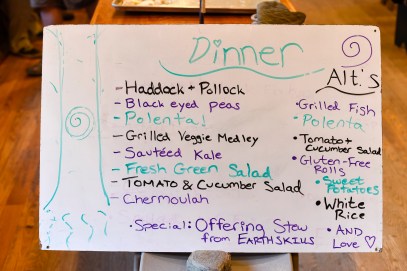 Dinner
- Haddock + Pollock
- Black eyed peas
- Polenta!
- Grilled Veggie Medley
- Sautéed Kale
- Fresh Green Salad
- TOMATO & CUCUMBER SALAD
- Chermoulah
• Special: Offering Stew
from EARTHSKILLS
Alt.'s
• Grilled Fish
• Polenta
• Tomato +
Cucumber Salad
• Gluten-Free
Rolls
• Sweet
Potatoes
• White
Rice
• AND
Love ♡